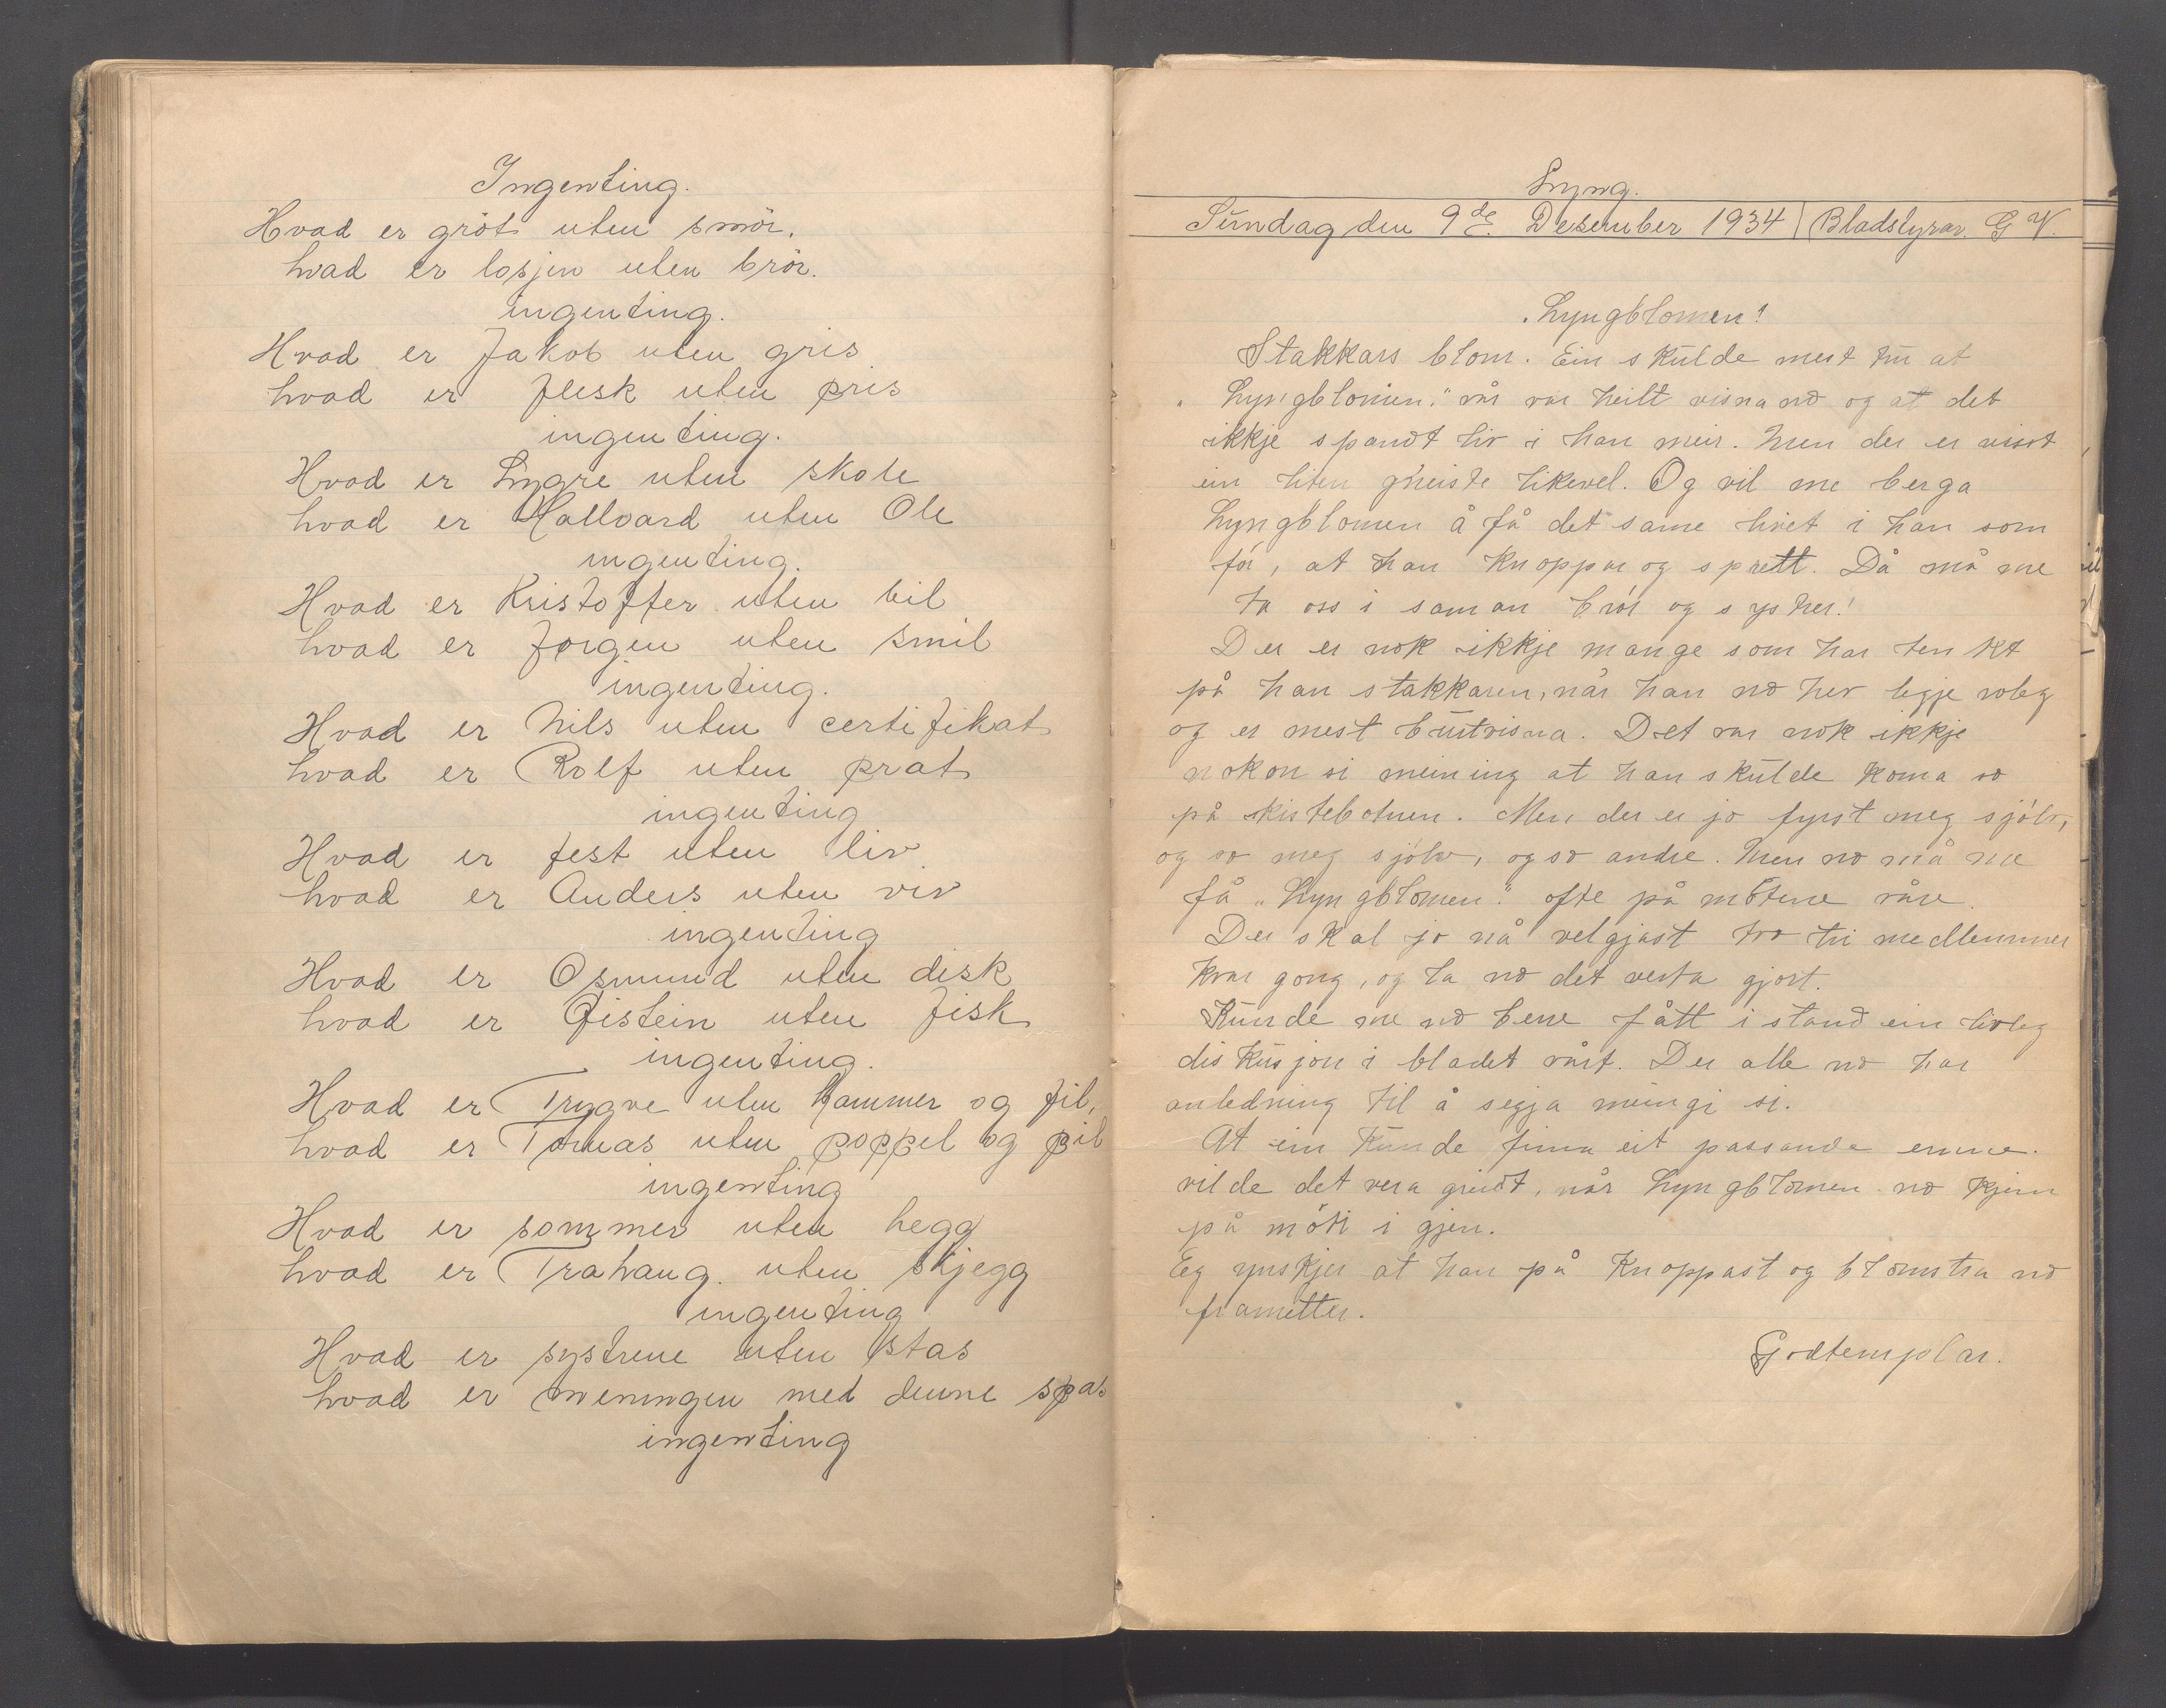 Ingenting.
Hvad er gröt uten smör.
hvad er losjen uten brör.
ingenting.
Hvad er Jakob uten gris
hvad er flesk uten pris
ingenting.
Hvad er Lygre uten skole
hvad er Hallvard uten Ole
ingenting.
Hvad er Kristoffer uten bil
hvad er Jörgen uten smil
ingenting.
Hvad er Nils uten certifikat
hvad er Rolf uten prat
ingenting
Hvad er fest uten liv
hvad er Anders uten viv
ingenting
Hvad er Osmund uten disk
hvad er Øistein uten fisk
ingenting.
Hvad er Trygve uten hammer og fil,
hvad er Tomas uten poppel og pil
ingenting
Hvad er sommer uten hegg
hvad er Trahaug. uten skjegg
ingenting
Hvad er systrene uten stas
hvad er meningen med denne spas
ingenting
Lyng.
Sundag den 9de. Desember 1934 Bladstyrar. G V.
"Lyngblomen!
Stakkars blom. Ein skulde mest tru at
"Lyngblomen" vår var heilt visna no og at det
ikkje spandt liv i han meir. Men der er visst
ein liten gneiste likevel. Og vil me berga
Lyngblomen å få det same livet i han som
för, at han knoppar og sprett. Då må me
ta oss i saman brör og syster!
Der er nok ikkje mange som har tenkt
på han stakkaren, når han no hev legje roleg
og er mest burtvisna. Det var nok ikkje
nokon si meining at han skulde koma so
på kistebotnen. Men der er jo fyrst meg sjölv,
og so meg sjölv, og so andre. Men no må me
få "Lyngblomen" ofte på mötene våre.
Der skal jo nå velgjast two tri medlemmer
kvar gong, og la no det verta gjort.
Kunde me no bere fått i stand ein livleg
diskusjon i bladet vårt. Der alle no har
anledning til å segja meingi si.
At ein kunde finna eit passande emne.
vilde det vera greidt, når Lyngblomen no kjem
på möti i gjen.
Eg ynskjer at han på knoppast og blomstra no
frametter.
Godtemplar.